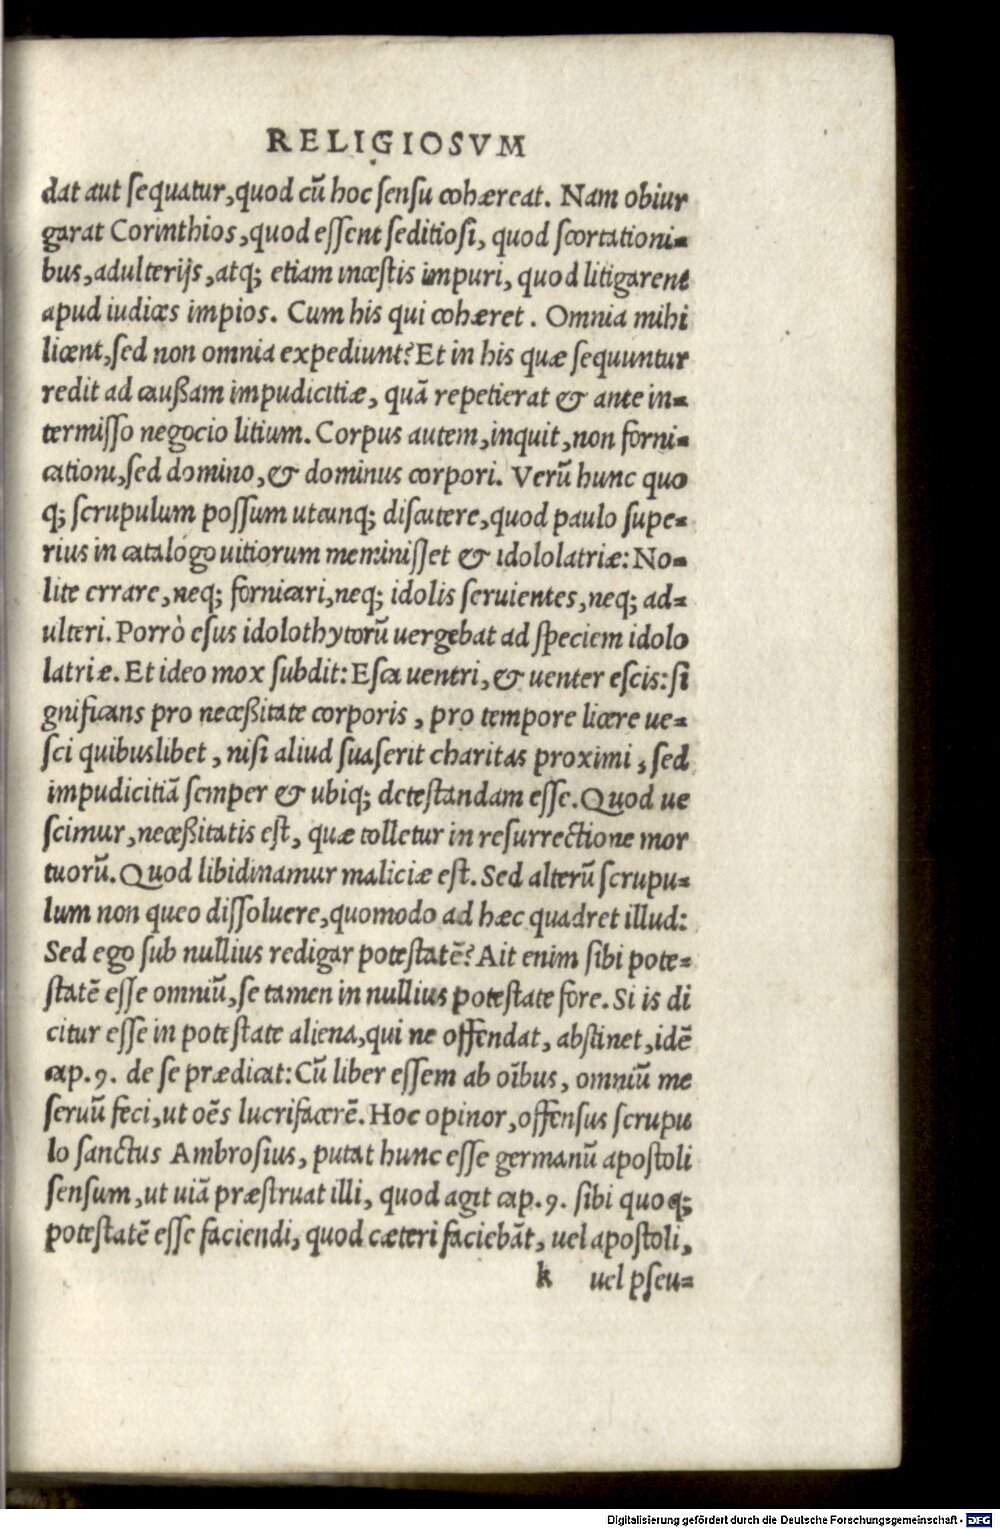 RELIGIOSVM
dat aut sequatur, quod cũ hoc sensu cohæreat. Nam obiur
garat Corinthios, quod essent seditiosi, quod scortationi=
bus, adulterijs, atq; etiam incestis impuri, quod litigarent
apud iudices impios. Cum his qui cohæret. Omnia mihi
licent, sed non omnia expediunt? Et in his quæ sequuntur
redit ad caußam impudicitiæ, quã repetierat & ante in=
termisso negocio litium. Corpus autem, inquit, non forni=
cationi, sed domino, & dominus corpori. Verũ hunc quo
q; scrupulum possum utcunq; discutere, quod paulo supe=
rius in catalogo uitiorum meminisset & idololatriæ: No=
lite errare, neq; fornicari, neq; idolis seruientes, neq; ad=
ulteri. Porrò esus idolothytorũ uergebat ad speciem idolo
latriæ. Et ideo mox subdit: Esca uentri, & uenter escis: si
gnificans pro neceßitate corporis, pro tempore licere ue=
sci quibuslibet, nisi aliud suaserit charitas proximi, sed
impudicitiã semper & ubiq; detestandam esse. Quod ue
scimur, neceßitatis est, quæ tolletur in resurrectione mor
tuorũ. Quod libidinamur maliciæ est. Sed alterũ scrupu=
lum non queo dissoluere, quomodo ad hæc quadret illud:
Sed ego sub nullius redigar potestatẽ? Ait enim sibi pote=
statẽ esse omniũ, se tamen in nullius potestate fore. Si is di
citur esse in potestate aliena, qui ne offendat, abstinet, idẽ
cap. 9. de se prædicat: Cũ liber essem ab oĩbus, omniũ me
seruũ feci, ut oẽs lucrifacerẽ. Hoc opinor, offensus scrupu
lo sanctus Ambrosius, putat hunc esse germanũ apostoli
sensum, ut uiã præstruat illi, quod agit cap. 9. sibi quoq;
potestatẽ esse faciendi, quod cæteri faciebãt, uel apostoli,
k uel pseu=
Digitalisierung gefördert durch die Deutsche Forschungsgemeinschaft - DFG